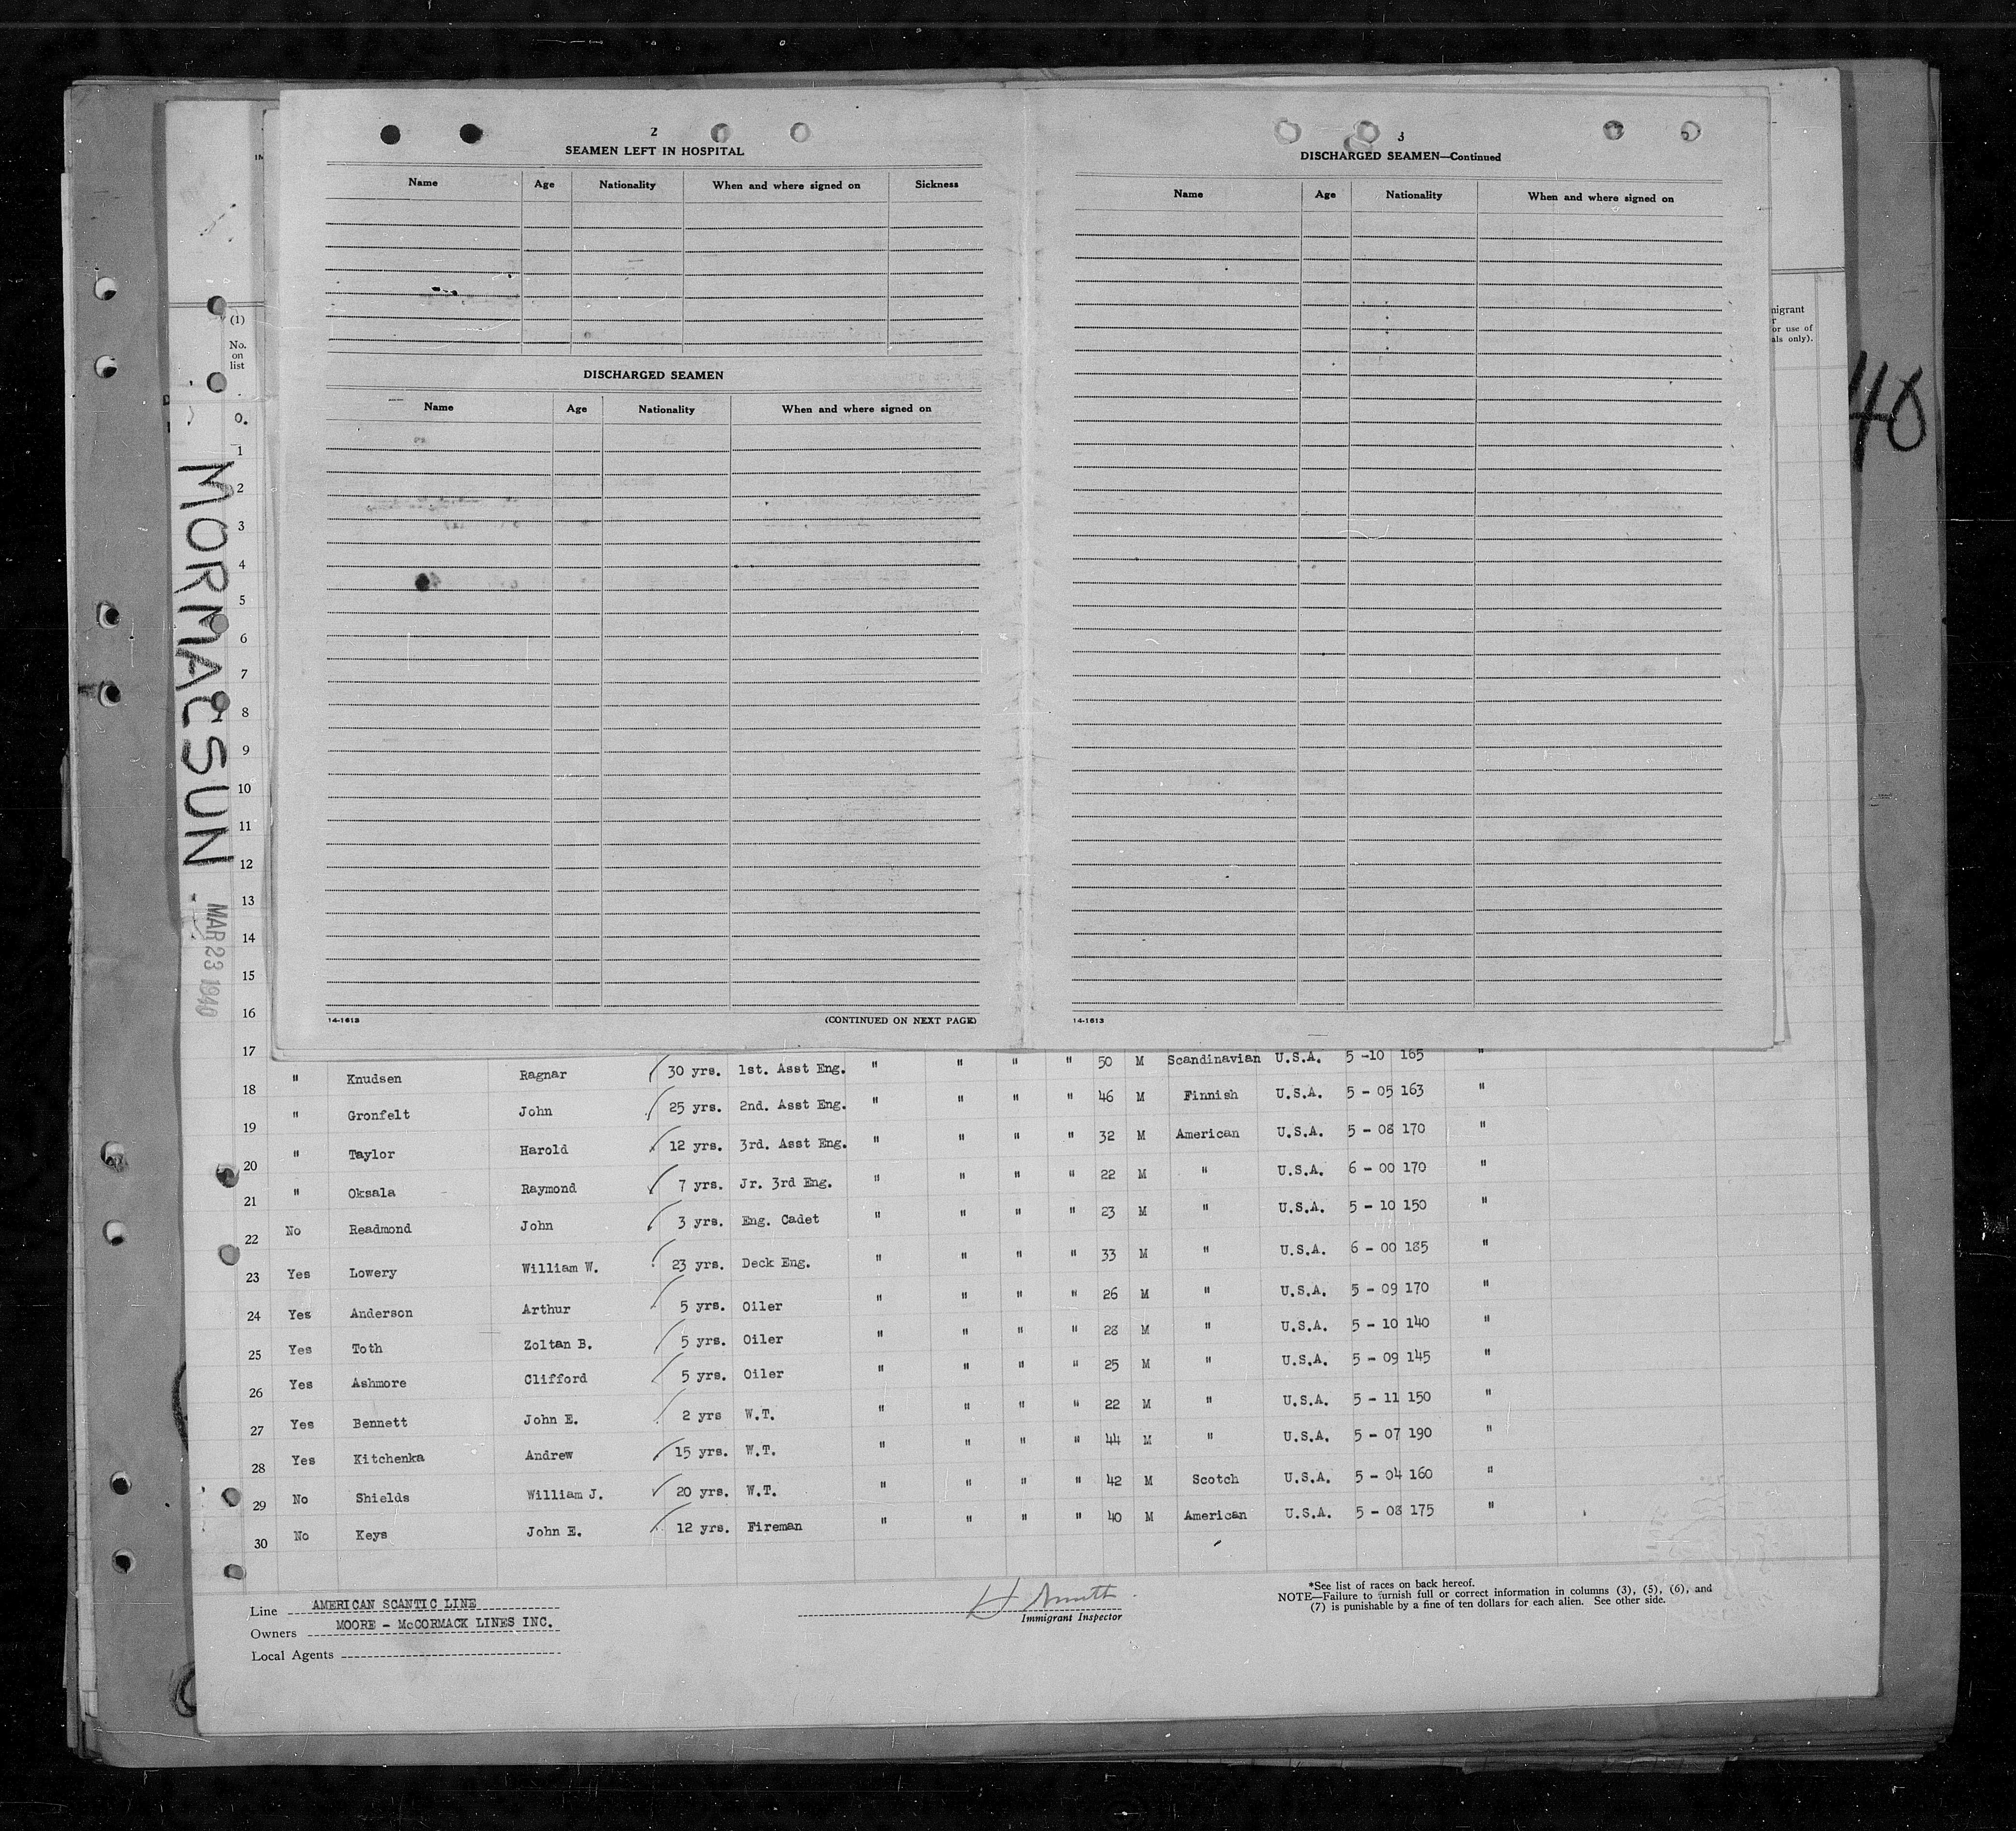 2
SEAMEN LEFT IN HOSPITAL
Name Age Nationality When and where signed on Sickness
DISCHARGED SEAMEN
Name Age Nationality When and where signed on
14-1613 (CONTINUED ON NEXT PAGE)
3
DISCHARGED SEAMEN—Continued
Name Age Nationality When and where signed on
14-1613
(1)
No.
on
list
nigrant
r
or use of
als only).
40
MORMACSUN
MAR 23 1940
0.
1
2
3
4
5
6
7
8
9
10
11
12
13
14
15
16
17 " Knudsen Ragnar 30 yrs. 1st. Asst Eng. " " " " 50 M Scandinavian U.S.A. 5 -10 165 "
18 " Gronfelt John 25 yrs. 2nd. Asst Eng. " " " " 46 M Finnish U.S.A. 5 - 05 163 "
19 " Taylor Harold 12 yrs. 3rd. Asst Eng. " " " " 32 M American U.S.A. 5 - 08 170 "
20 " Oksala Raymond 7 yrs. Jr. 3rd Eng. " " " " 22 M " U.S.A. 6 - 00 170 "
21 No Readmond John 3 yrs. Eng. Cadet " " " " 23 M " U.S.A. 5 - 10 150 "
22 Yes Lowery William W. 23 yrs. Deck Eng. " " " " 33 M " U.S.A. 6 - 00 185 "
23 Yes Anderson Arthur 5 yrs. Oiler " " " " 26 M " U.S.A. 5 - 09 170 "
24 Yes Toth Zoltan B. 5 yrs. Oiler " " " " 28 M " U.S.A. 5 - 10 140 "
25 Yes Ashmore Clifford 5 yrs. Oiler " " " " 25 M " U.S.A. 5 - 09 145 "
26 Yes Bennett John E. 2 yrs W.T. " " " " 22 M " U.S.A. 5 - 11 150 "
27 Yes Kitchenka Andrew 15 yrs. W.T. " " " " 44 M " U.S.A. 5 - 07 190 "
28 No Shields William J. 20 yrs. W.T. " " " " 42 M Scotch U.S.A. 5 - 04 160 "
29 No Keys John E. 12 yrs. Fireman " " " " 40 M American U.S.A. 5 - 08 175 "
30
Line AMERICAN SCANTIC LINE
Owners MOORE - McCORMACK LINES INC.
Local Agents
H Smith
Immigrant Inspector
*See list of races on back hereof.
NOTE—Failure to furnish full or correct information in columns (3), (5), (6), and
(7) is punishable by a fine of ten dollars for each alien. See other side.